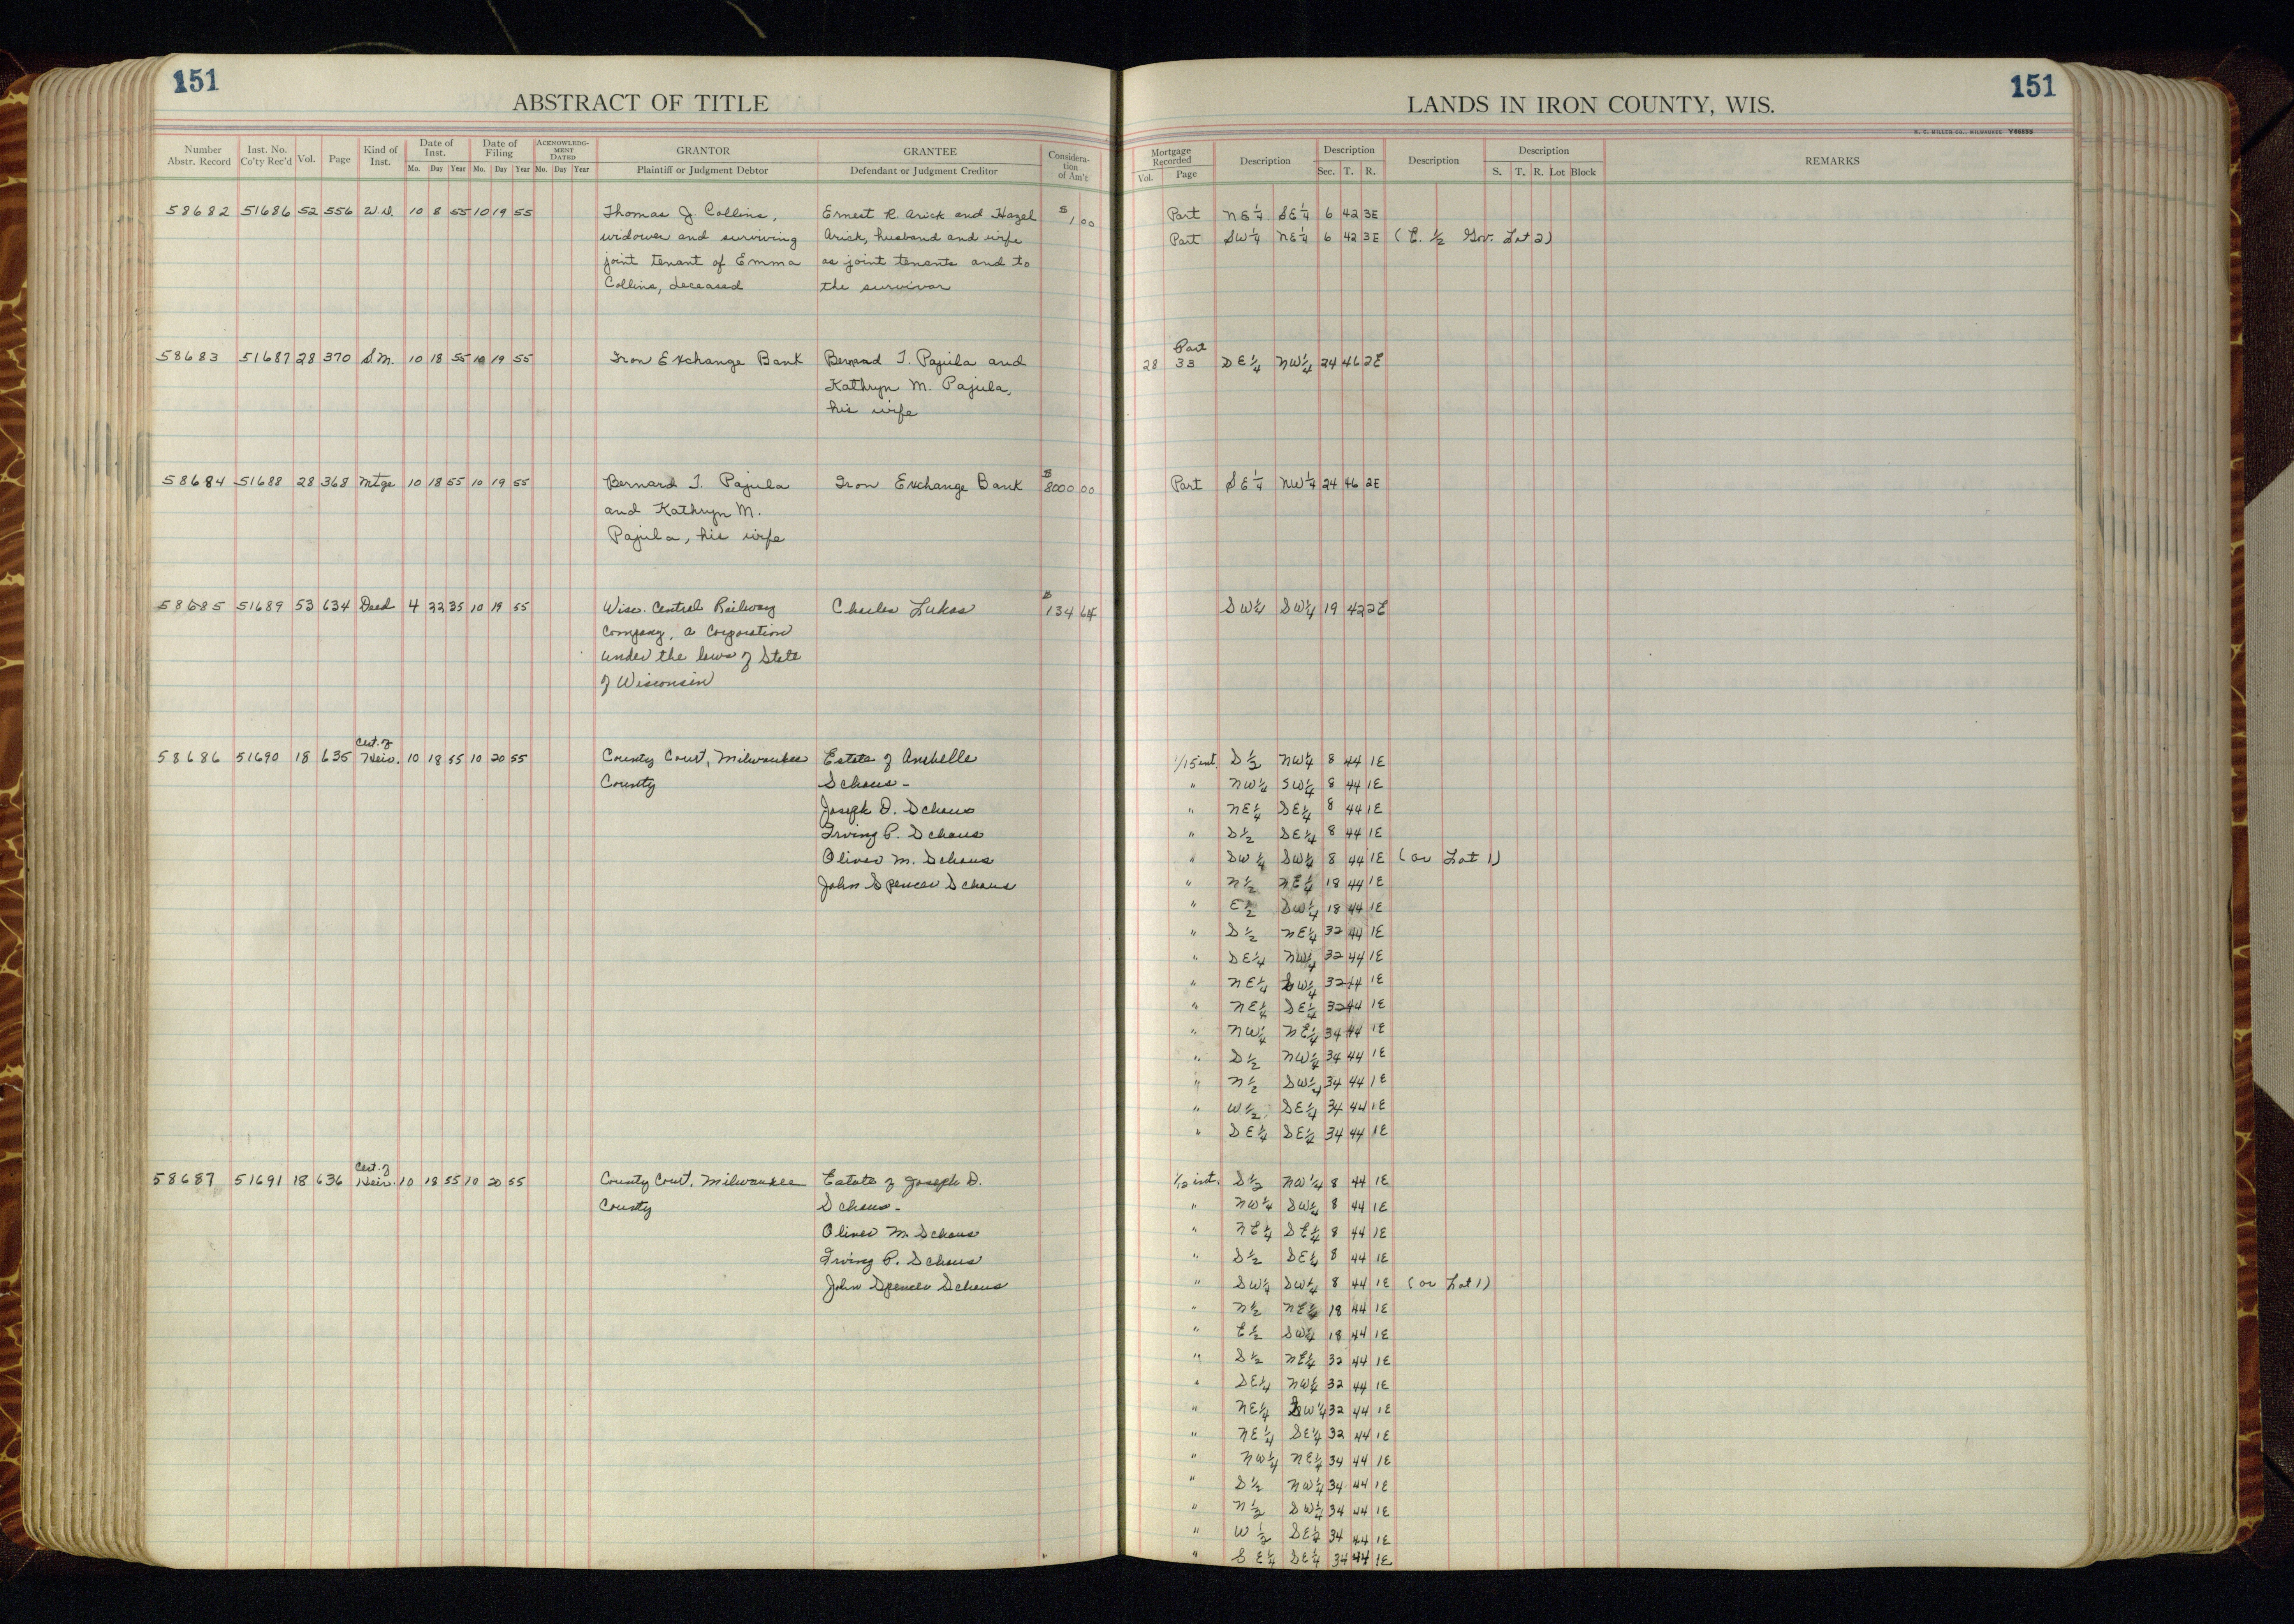 151
ABSTRACT OF TITLE
Number Abstr. Record | Inst. No. Co'ty Rec'd | Vol. | Page | Kind of Inst. | Date of Inst. Mo. Day Year | Date of Filing Mo. Day Year | ACKNOWLEDGMENT DATED Mo. Day Year | GRANTOR Plaintiff or Judgment Debtor | GRANTEE Defendant or Judgment Creditor | Consideration of Am't
58682 51686 52 556 W.D. 10 8 55 10 19 55 Thomas J. Collins, Ernest R. Arick and Hazel $1.00
widower and surviving Arick, husband and wife
joint tenant of Emma as joint tenants and to
Collins, deceased the survivor
58683 51687 28 370 S.M. 10 18 55 10 19 55 Iron Exchange Bank Bernard T. Pajula and
Kathryn M. Pajula,
his wife
58684 51688 28 368 Mtge 10 18 55 10 19 55 Bernard T. Pajula Iron Exchange Bank $8000 00
and Kathryn M.
Pajula, his wife
58685 51689 53 634 Deed 4 22 35 10 19 55 Wisc. Central Railway Charles Lukas $134 64
Company, a Corporation
under the laws of State
of Wisconsin
Cert. of
58686 51690 18 635 Heir. 10 18 55 10 20 55 County Court, Milwaukee Estate of Anabelle
County Schaus -
Joseph D. Schaus
Irving P. Schaus
Oliver M. Schaus
John Spencer Schaus
Cert. of
58687 51691 18 636 Heir. 10 18 55 10 20 55 County Court, Milwaukee Estate of Joseph D.
County Schaus -
Oliver M. Schaus
Irving P. Schaus
John Spencer Schaus
151
LANDS IN IRON COUNTY, WIS.
H. C. MILLER CO., MILWAUKEE
Mortgage Recorded Vol. Page | Description | Description Sec. T. R. | Description | Description S. T. R. Lot Block | REMARKS
Part NE¼ SE¼ 6 42 3E
Part SW¼ NE¼ 6 42 3E (E. ½ Gov. Lot 2)
Part
28 33 SE¼ NW¼ 24 46 2E
Part SE¼ NW¼ 24 46 2E
SW¼ SW¼ 19 42 2E
1/15 int. S½ NW¼ 8 44 1E
" NW¼ SW¼ 8 44 1E
" NE¼ SE¼ 8 44 1E
" S½ SE¼ 8 44 1E
" SW¼ SW¼ 8 44 1E (or Lot 1)
" N½ NE¼ 18 44 1E
" E½ SW¼ 18 44 1E
" S½ NE¼ 32 44 1E
" SE¼ NW¼ 32 44 1E
" NE¼ SW¼ 32 44 1E
" NE¼ SE¼ 32 44 1E
" NW¼ NE¼ 34 44 1E
" S½ NW¼ 34 44 1E
" N½ SW¼ 34 44 1E
" W½ SE¼ 34 44 1E
" SE¼ SE¼ 34 44 1E
1/12 int. S½ NW¼ 8 44 1E
" NW¼ SW¼ 8 44 1E
" NE¼ SE¼ 8 44 1E
" S½ SE¼ 8 44 1E
" SW¼ SW¼ 8 44 1E (or Lot 1)
" N½ NE¼ 18 44 1E
" E½ SW¼ 18 44 1E
" S½ NE¼ 32 44 1E
" SE¼ NW¼ 32 44 1E
" NE¼ SW¼ 32 44 1E
" NE¼ SE¼ 32 44 1E
" NW¼ NE¼ 34 44 1E
" S½ NW¼ 34 44 1E
" N½ SW¼ 34 44 1E
" W½ SE¼ 34 44 1E
" SE¼ SE¼ 34 44 1E